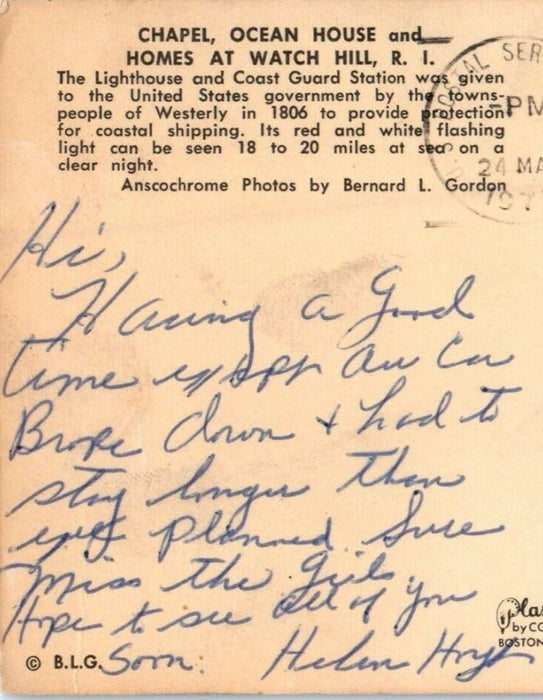 CHAPEL, OCEAN HOUSE and
HOMES AT WATCH HILL, R. I.
The Lighthouse and Coast Guard Station was given
to the United States government by the towns-
people of Westerly in 1806 to provide protection
for coastal shipping. Its red and white flashing
light can be seen 18 to 20 miles at sea on a
clear night.
Anscochrome Photos by Bernard L. Gordon
POSTAL SER
PM
24 MA
197
Hi,
Having a Good
time except our Car
Broke down & had to
stay longer than
planned. Sure
Miss the Girls.
Hope to see all of you
Soon. Helen
© B.L.G.
Pla
by CO
BOSTON